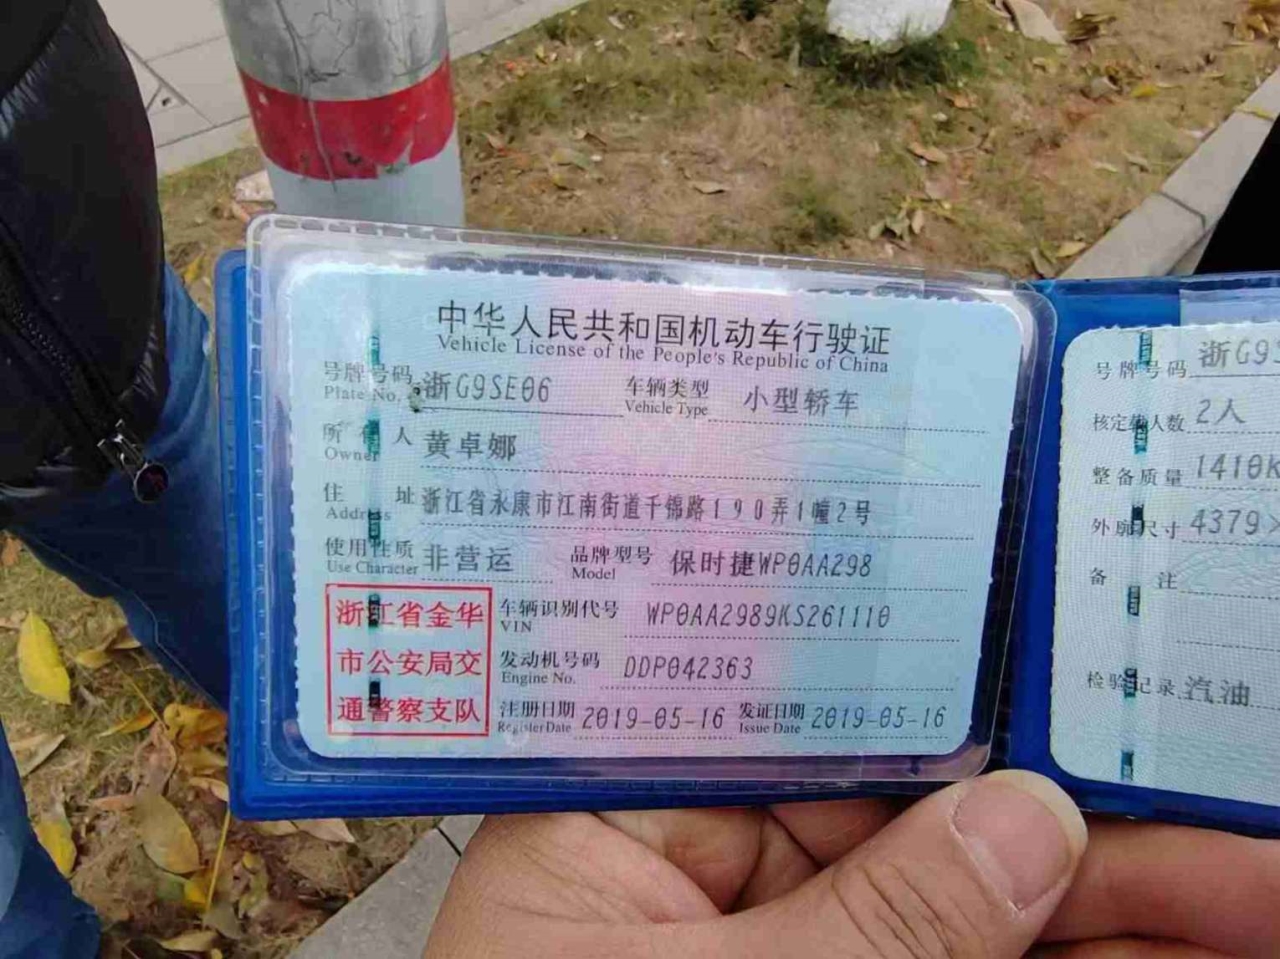 中华人民共和国机动车行驶证
Vehicle License of the People's Republic of China
号牌号码 浙G9SE06 车辆类型 小型轿车
Plate No. Vehicle Type
所有人 黄卓娜
Owner
住址 浙江省永康市江南街道千锦路190弄1幢2号
Address
使用性质 非营运 品牌型号 保时捷WP0AA298
Use Character Model
浙江省金华
市公安局交
通警察支队
车辆识别代号 WP0AA2989KS261110
VIN
发动机号码 DDP042363
Engine No.
注册日期 2019-05-16 发证日期 2019-05-16
Register Date Issue Date
号牌号码 浙G9S
核定载人数 2人
整备质量 1410K
外廓尺寸 4379×
备注
检验记录 汽油